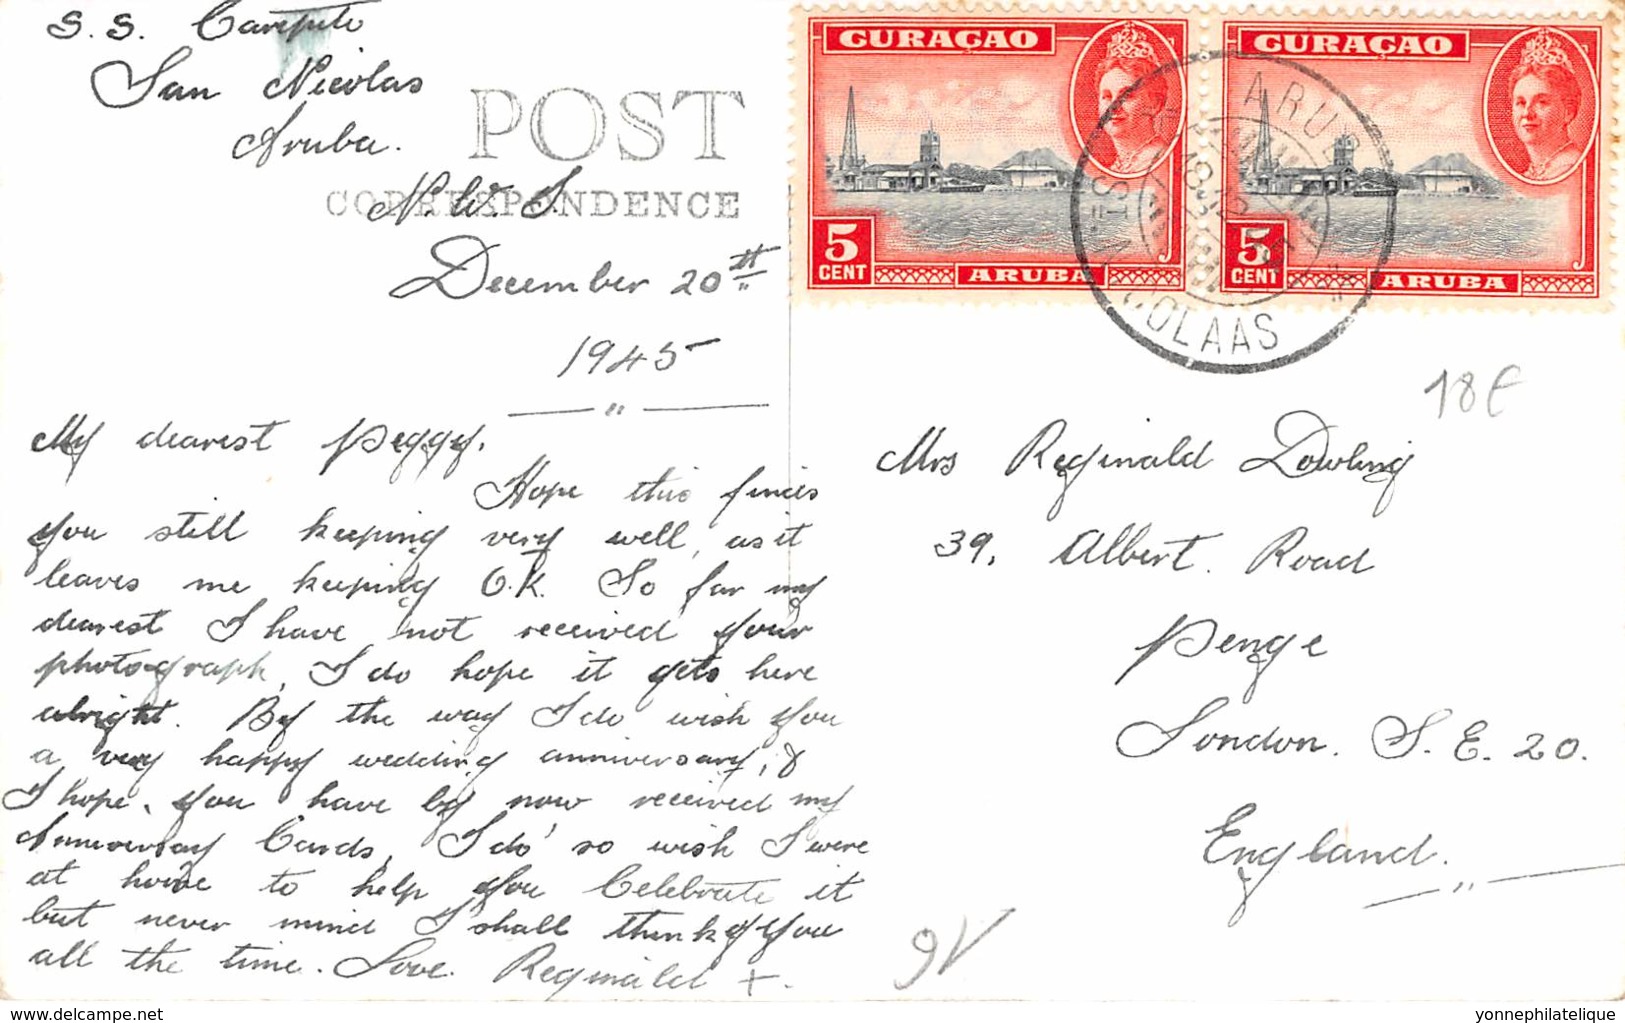 S. S. Caripito
San Nicolas
Aruba.
N. W. I.
December 20th
1945
POST
CORRESPONDENCE
My dearest Peggy.
Hope this finds
you still keeping very well, as it
leaves me keeping O.K. So far my
dearest I have not received your
photograph, I do hope it gets here
alright. By the way I do wish you
a very happy wedding anniversary, &
I hope you have by now received my
Anniversay Cards, I do so wish I were
at home to help you Celebrate it
but never mind I shall think of you
all the time. Love. Reginald x.
CURAÇAO
5
CENT
ARUBA
CURAÇAO
5
CENT
ARUBA
ARUBA
ST. NICOLAAS
18€
Mrs Reginald Dowling
39, Albert. Road
Penge
London. S. E. 20.
England.
delcampe.net
yonnephilatelique